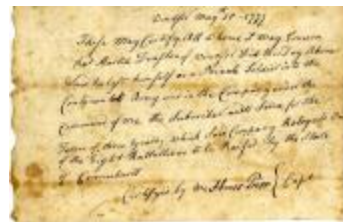 May 10 - 1777
These May Certify All whome it may Concern
that Martin of Did this Day Above
himself as a Private Soldier in the
Continental Army and in the Company under the
Command of me the Subscriber and Serve for the
Term of three years, which Said Company Belongs
of the Eight Battallion to be Raised By the State
of Connecticut
Certifyed by me Capt